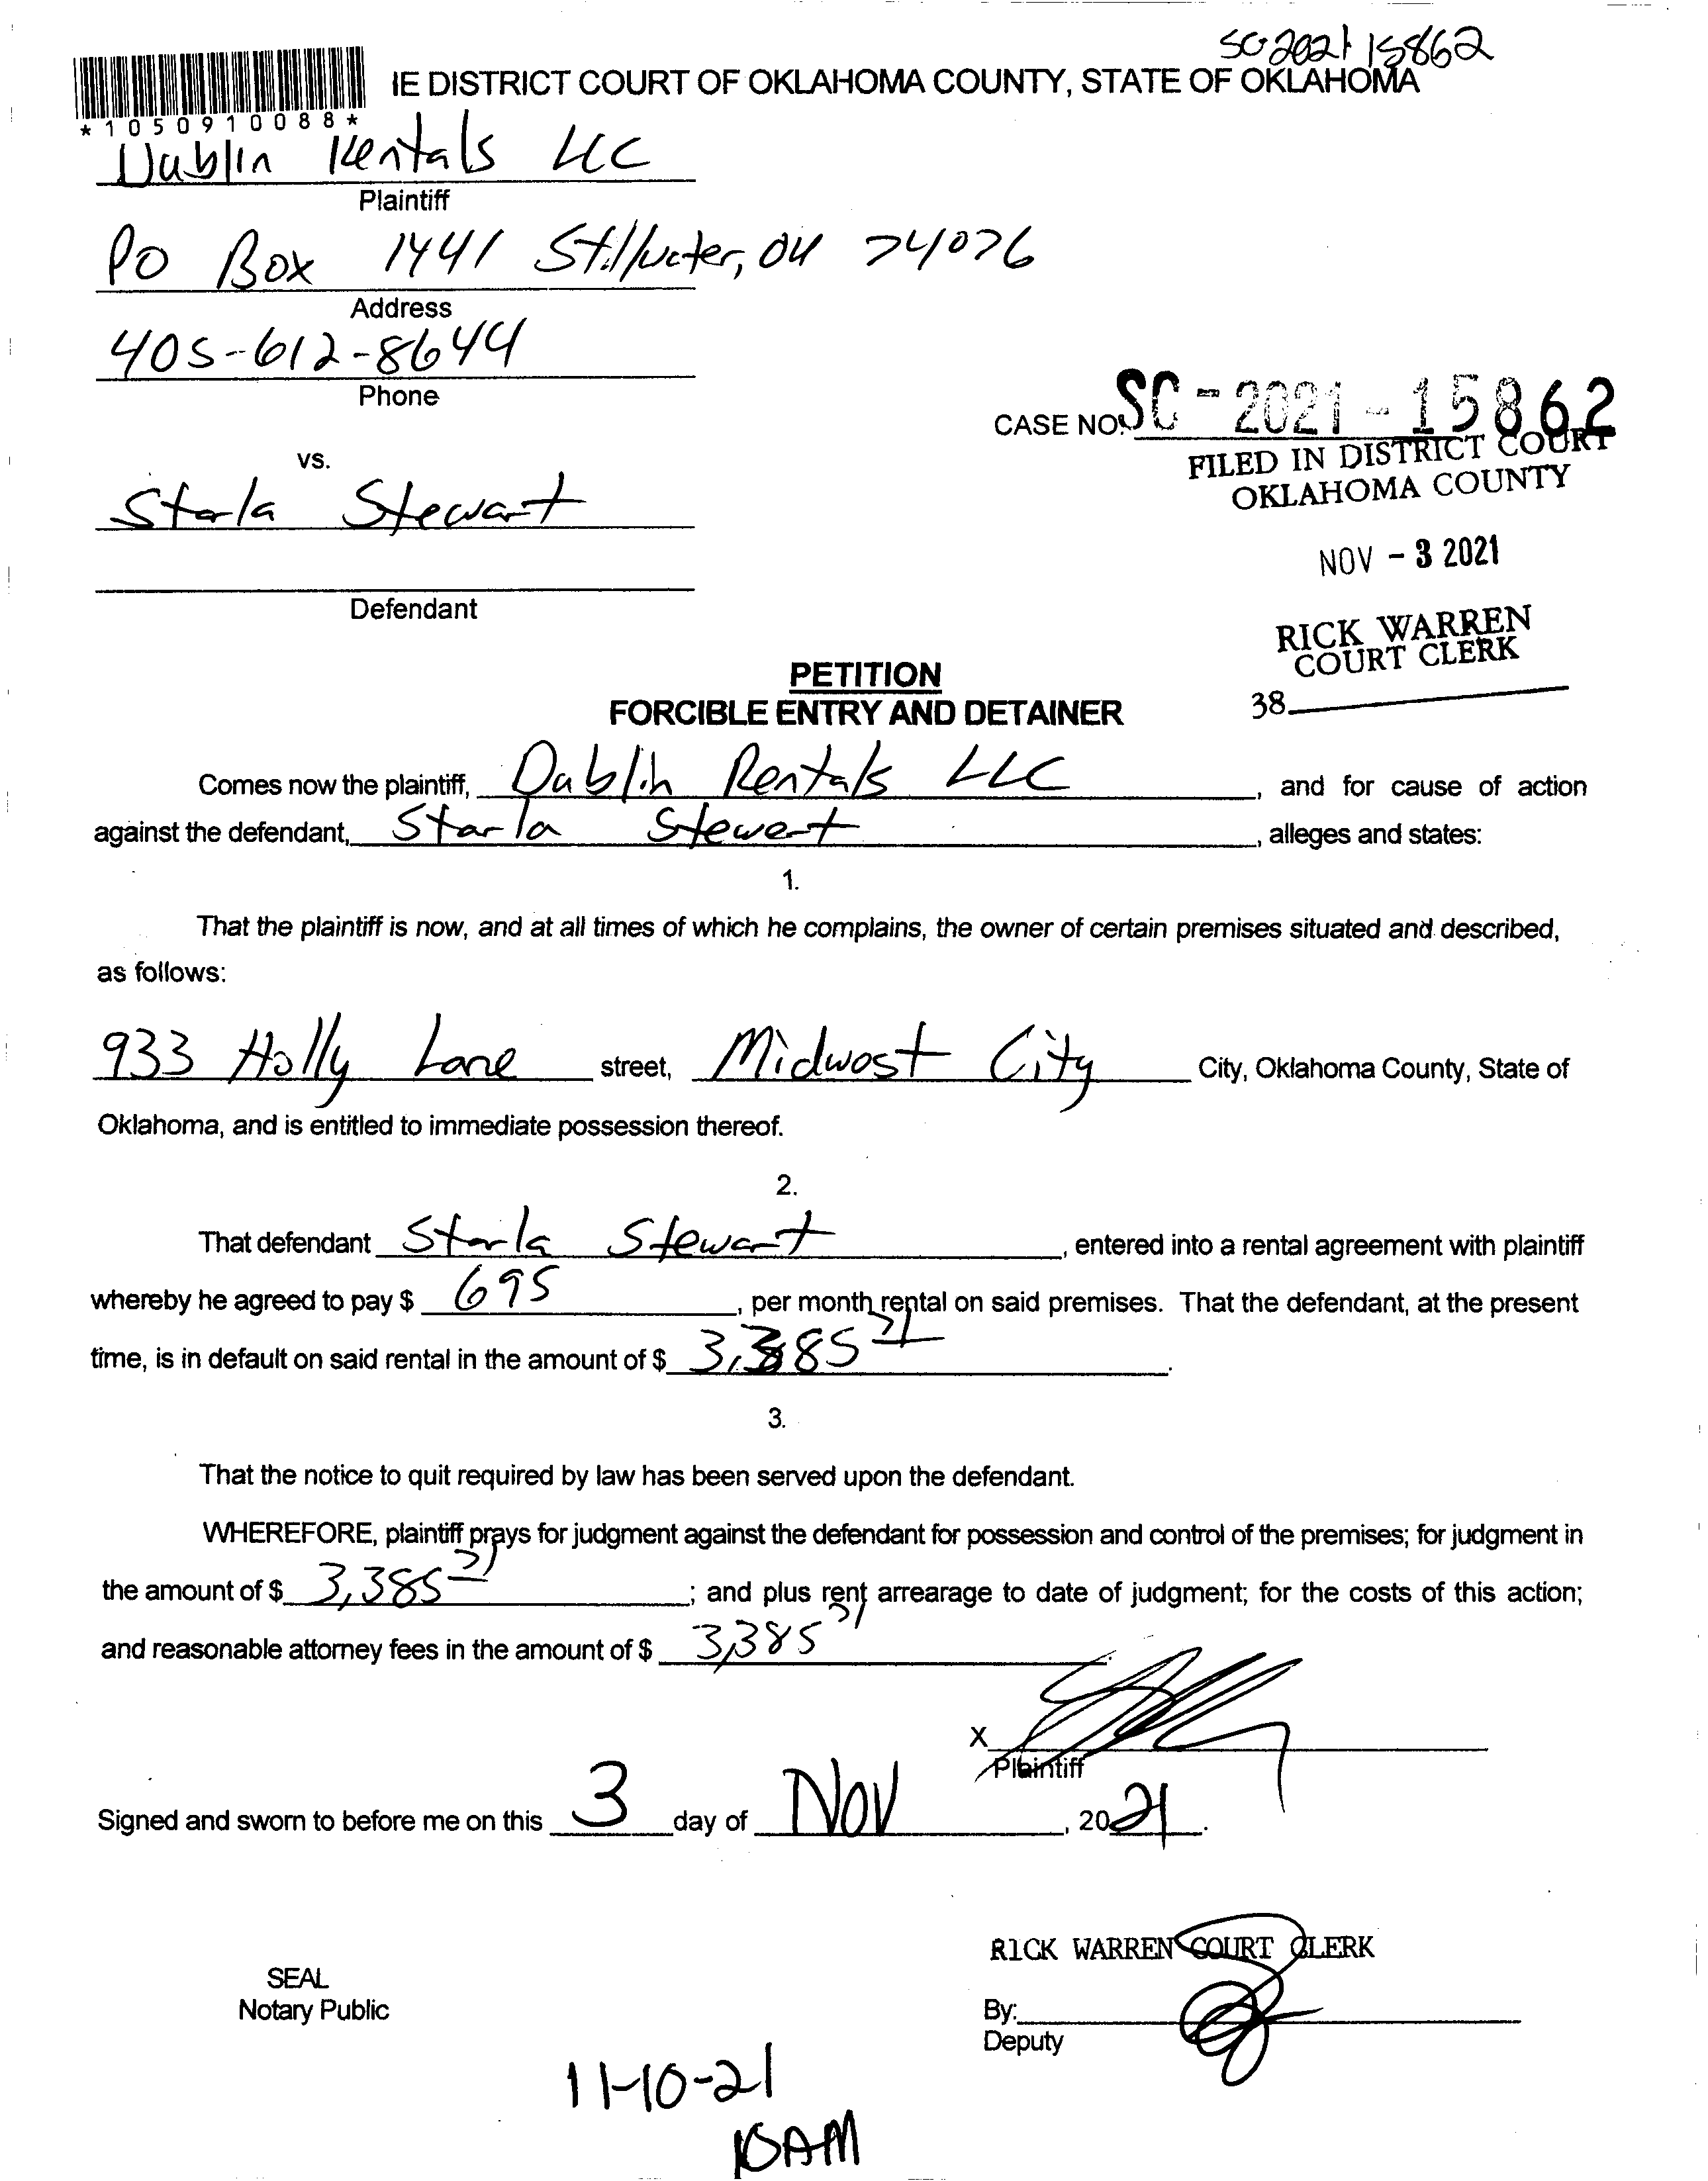 SC-2021 15862
IE DISTRICT COURT OF OKLAHOMA COUNTY, STATE OF OKLAHOMA
*1050910088*
Dublin Rentals LLC
Plaintiff
PO Box 1441 Stillwater, OK 74076
Address
405-612-8644
Phone
CASE NO. SC-2021-15862
FILED IN DISTRICT COURT
OKLAHOMA COUNTY
vs.
Starla Stewart
NOV - 3 2021
Defendant
RICK WARREN
COURT CLERK
38
PETITION
FORCIBLE ENTRY AND DETAINER
Comes now the plaintiff, Dublin Rentals LLC, and for cause of action
against the defendant, Starla Stewart, alleges and states:
1.
That the plaintiff is now, and at all times of which he complains, the owner of certain premises situated and described,
as follows:
933 Holly Lane street, Midwest City City, Oklahoma County, State of
Oklahoma, and is entitled to immediate possession thereof.
2.
That defendant Starla Stewart, entered into a rental agreement with plaintiff
whereby he agreed to pay $ 695, per month rental on said premises. That the defendant, at the present
time, is in default on said rental in the amount of $ 3,385.
3.
That the notice to quit required by law has been served upon the defendant.
WHEREFORE, plaintiff prays for judgment against the defendant for possession and control of the premises; for judgment in
the amount of $ 3,385; and plus rent arrearage to date of judgment; for the costs of this action;
and reasonable attorney fees in the amount of $ 3,385.
X
Plaintiff
Signed and sworn to before me on this 3 day of Nov, 2021.
RICK WARREN COURT CLERK
SEAL
Notary Public
By:
Deputy
11-10-21
10AM